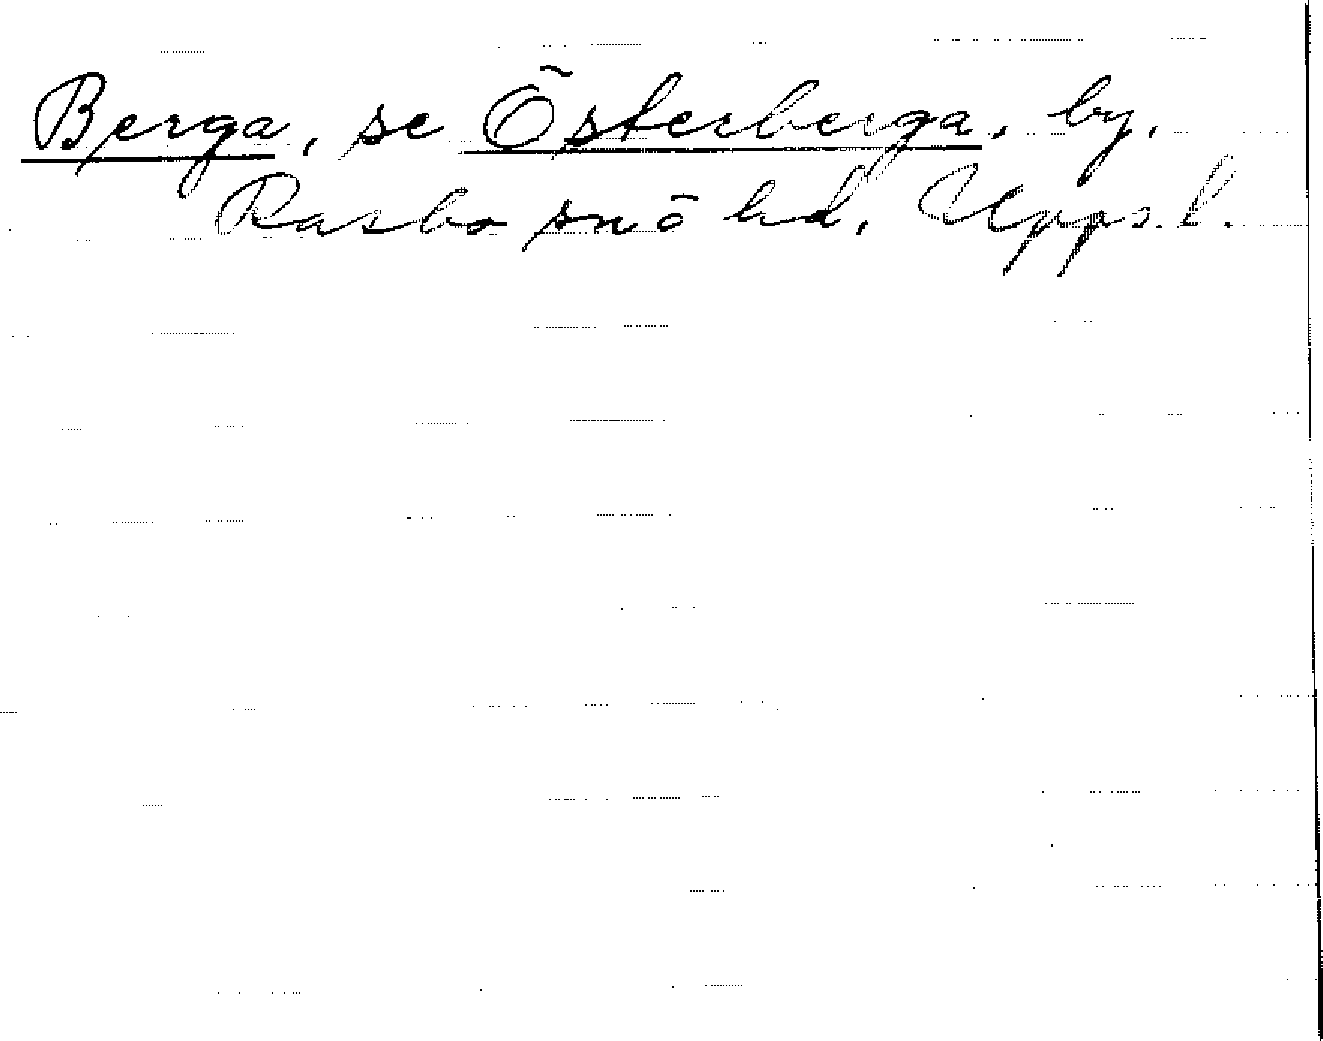 Berga, se Österberga, by,
Rasbo sn ö hd, Upps. l.